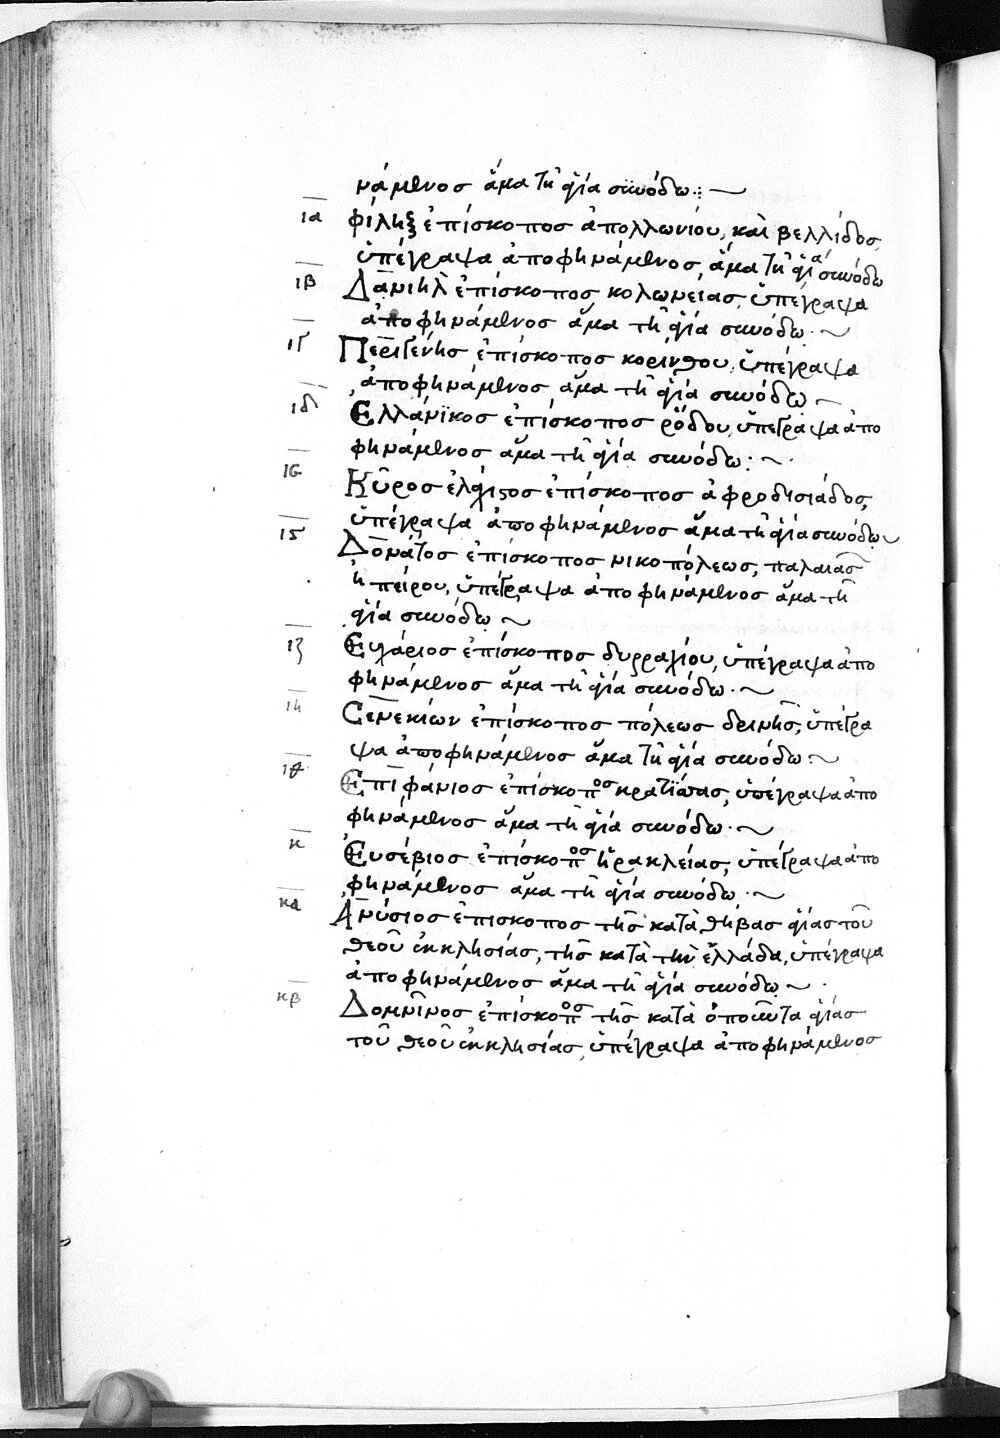 νάμενος ἅμα τῇ ἁγία συνόδω:
ια φίληξ ἐπίσκοπος ἀπολλωνίου, καὶ βελλίδος,
ὑπέγραψα ἀποφηνάμενος, ἅμα τῇ ἁγία συνόδω
ιβ Δανιὴλ ἐπίσκοπος κολωνείας, ὑπέγραψα
ἀποφηνάμενος ἅμα τῇ ἁγία συνόδω.
ιγ Περιγένης ἐπίσκοπος κορίνθου, ὑπέγραψα
ἀποφηνάμενος ἅμα τῇ ἁγία συνόδω
ιδ Ἑλλάνϊκος ἐπίσκοπος ῥόδου, ὑπέγραψα ἀπο
φηνάμενος ἅμα τῇ ἁγία συνόδω:
ιε Κῦρος ἐλάχιστος ἐπίσκοπος ἀφροδησιάδος,
ὑπέγραψα ἀποφηνάμενος ἅμα τῇ ἁγία συνόδω
ις Δονᾶτος ἐπίσκοπος νικοπόλεως, παλαιᾶς
ἠπείρου, ὑπέγραψα ἀποφηνάμενος ἅμα τῇ
ἁγία συνόδω
ιζ Εὐχάριος ἐπίσκοπος δυρραχίου, ὑπέγραψα ἀπο
φηνάμενος ἅμα τῇ ἁγία συνόδω.
ιη Σενεκίων ἐπίσκοπος πόλεως δρινῆς, ὑπέγρα
ψα ἀποφηνάμενος ἅμα τῇ ἁγία συνόδω:
ιθ Ἐπιφάνιος ἐπίσκοπος κρατϊάνας, ὑπέγραψα ἀπο
φηνάμενος ἅμα τῇ ἁγία συνόδω.
κ Εὐσέβιος ἐπίσκοπος ἡρακλείας, ὑπέγραψα ἀπο
φηνάμενος ἅμα τῇ ἁγία συνόδω.
κα Ἀνύσιος ἐπίσκοπος τῆς κατὰ θήβας ἁγίας τοῦ
θεοῦ ἐκκλησίας, τῆς κατὰ τὴν ἑλλάδα, ὑπέγραψα
ἀποφηνάμενος ἅμα τῇ ἁγία συνόδω.
κβ Δομνῖνος ἐπίσκοπος τῆς κατὰ ὀποῦντα ἁγίας
τοῦ θεοῦ ἐκκλησίας, ὑπέγραψα ἀποφηνάμενος